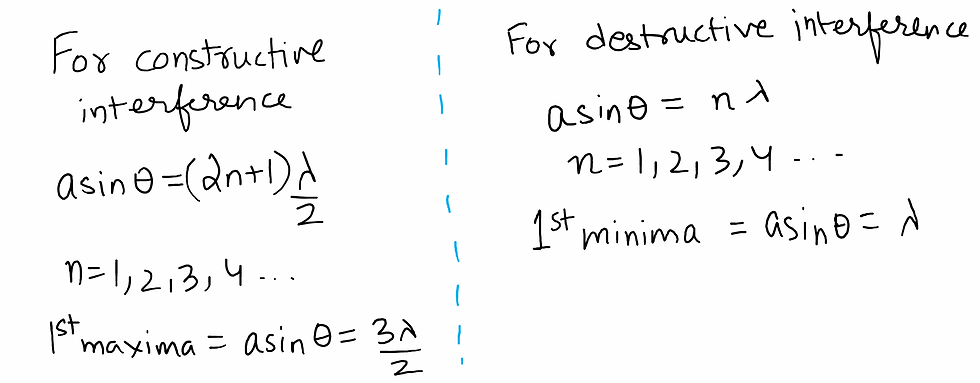 For constructive
interference
asinθ = (2n+1) λ/2
n=1,2,3,4 ...
1st maxima = asinθ = 3λ/2
For destructive interference
asinθ = nλ
n=1,2,3,4 ...
1st minima = asinθ = λ